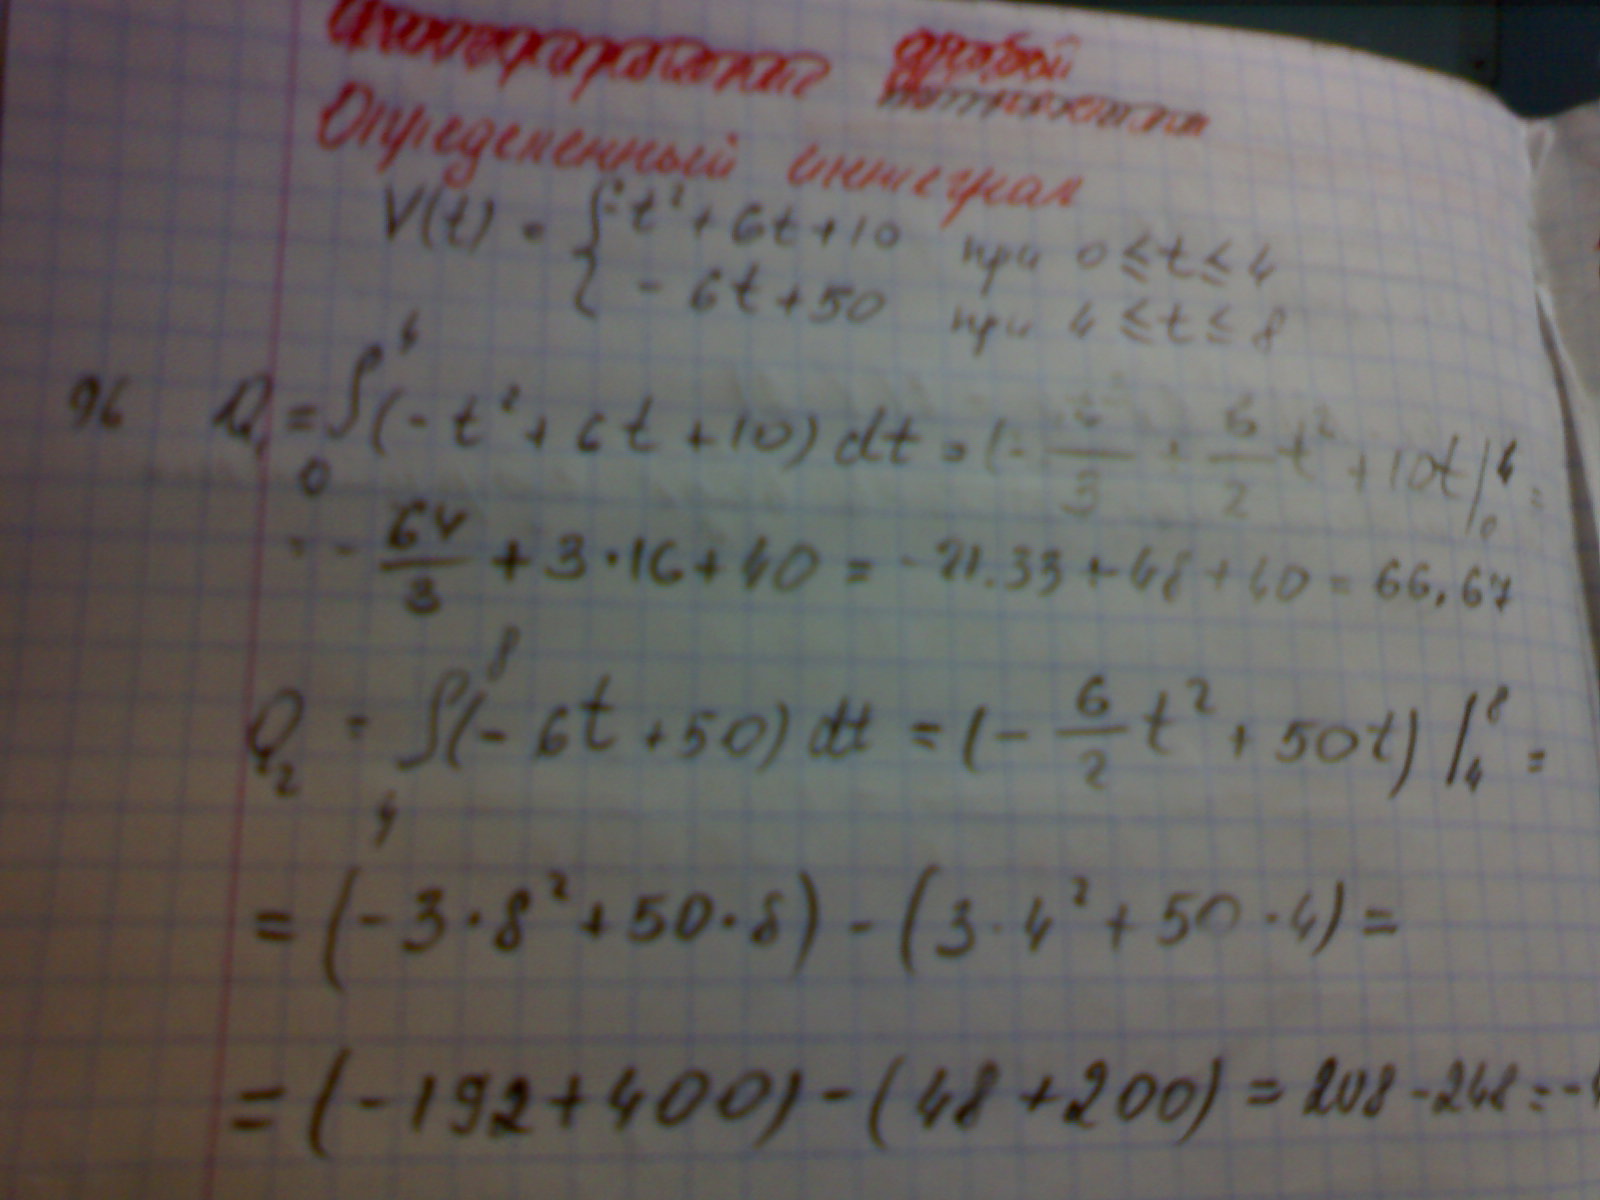 Определенный интеграл
V(t) = { -t² + 6t + 10 при 0 ≤ t ≤ 4
- 6t + 50 при 4 ≤ t ≤ 8
96 Q₁ = ∫₀⁴ (- t² + 6t + 10) dt = (- t³/3 + 6/2 t² + 10t |₀⁴ =
= - 64/3 + 3 · 16 + 40 = - 21.33 + 48 + 40 = 66,67
Q₂ = ∫₄⁸ (- 6t + 50) dt = (- 6/2 t² + 50t) |₄⁸ =
= (- 3 · 8² + 50 · 8) - (3 · 4² + 50 · 4) =
= (- 192 + 400) - (48 + 200) = 208 - 248 = -